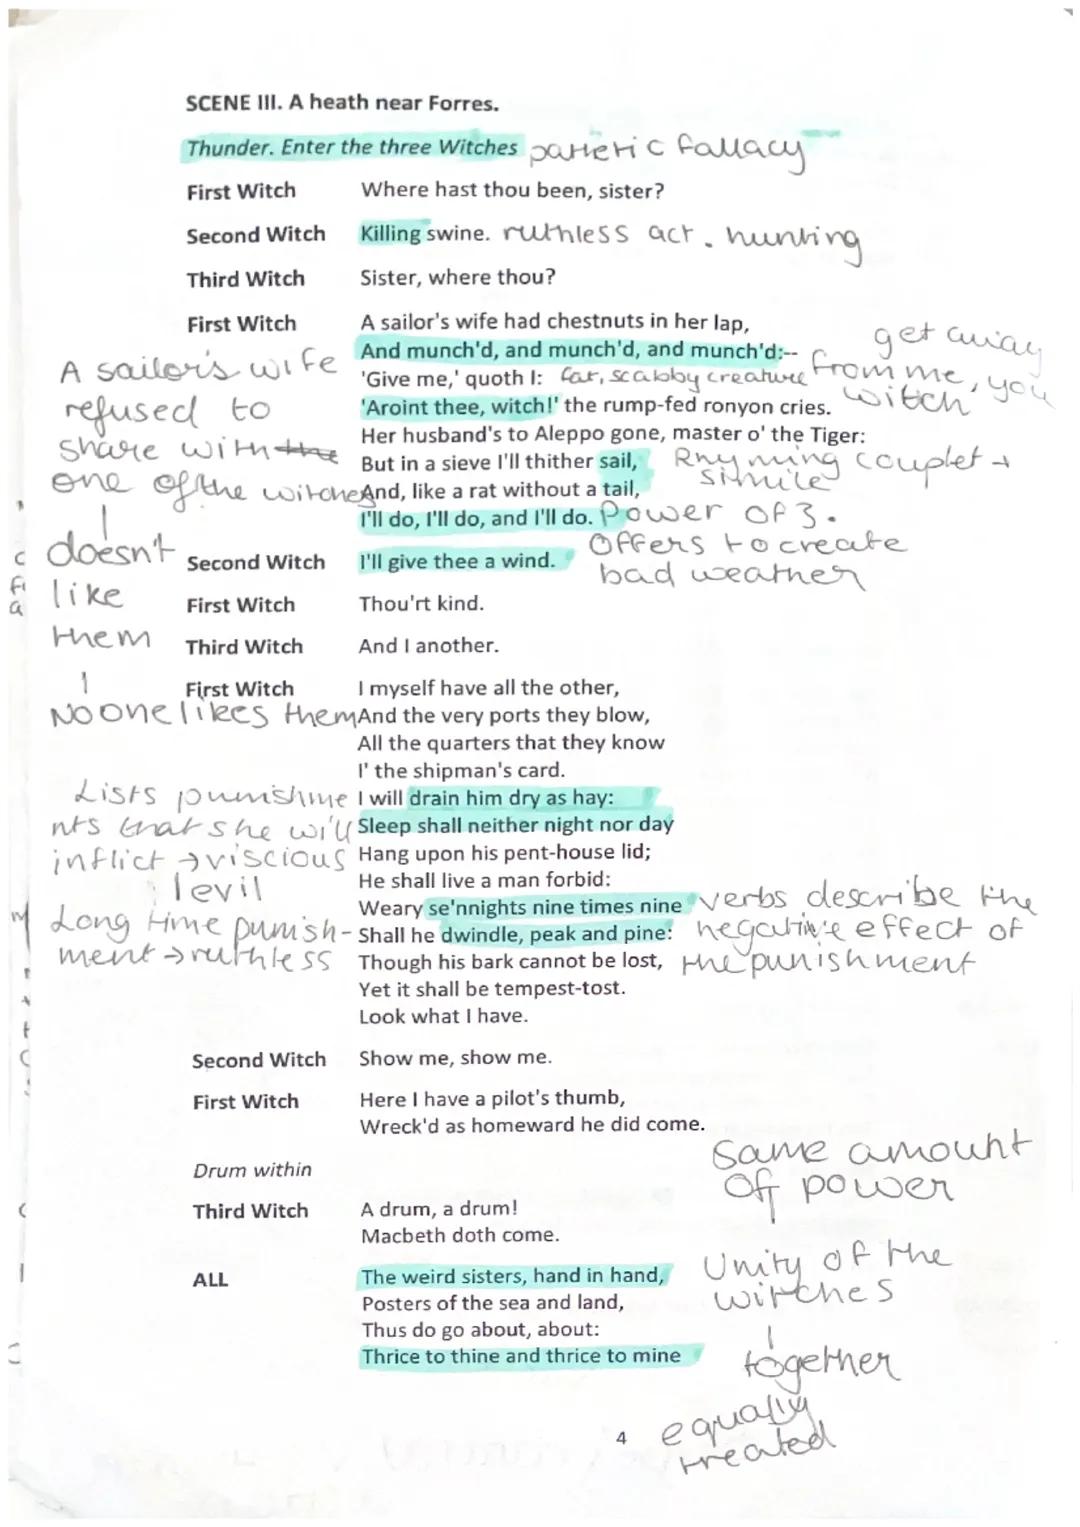 SCENE III. A heath near Forres.
Thunder. Enter the three Witches patheric fallacy
First Witch Where hast thou been, sister?
Second Witch Killing swine. ruthless act. hunting
Third Witch Sister, where thou?
First Witch A sailor's wife had chestnuts in her lap,
And munch'd, and munch'd, and munch'd:--
'Give me,' quoth I: fat, scabby creature
'Aroint thee, witch!' the rump-fed ronyon cries.
get away
from me, you
witch
Her husband's to Aleppo gone, master o' the Tiger:
But in a sieve I'll thither sail,
And, like a rat without a tail,
Rhyming couplet +
simile
I'll do, I'll do, and I'll do. Power of 3.
A sailor's wife
refused to
share with the
one of the witches
doesn't
like
them
No one likes them
Second Witch I'll give thee a wind.
Offers to create
bad weather
First Witch Thou'rt kind.
Third Witch And I another.
First Witch I myself have all the other,
And the very ports they blow,
All the quarters that they know
I' the shipman's card.
I will drain him dry as hay:
Sleep shall neither night nor day
Hang upon his pent-house lid;
He shall live a man forbid:
Weary se'nnights nine times nine
Shall he dwindle, peak and pine:
Though his bark cannot be lost,
Yet it shall be tempest-tost.
Look what I have.
Lists punishme
nts that she will
inflict → viscious
/evil
Long time punish-
ment → ruthless
verbs describe the
negative effect of
the punishment
Second Witch Show me, show me.
First Witch Here I have a pilot's thumb,
Wreck'd as homeward he did come.
Drum within
Third Witch A drum, a drum!
Macbeth doth come.
Same amount
of power
ALL The weird sisters, hand in hand,
Posters of the sea and land,
Thus do go about, about:
Thrice to thine and thrice to mine
Unity of the
witches
together
equally
treated
4